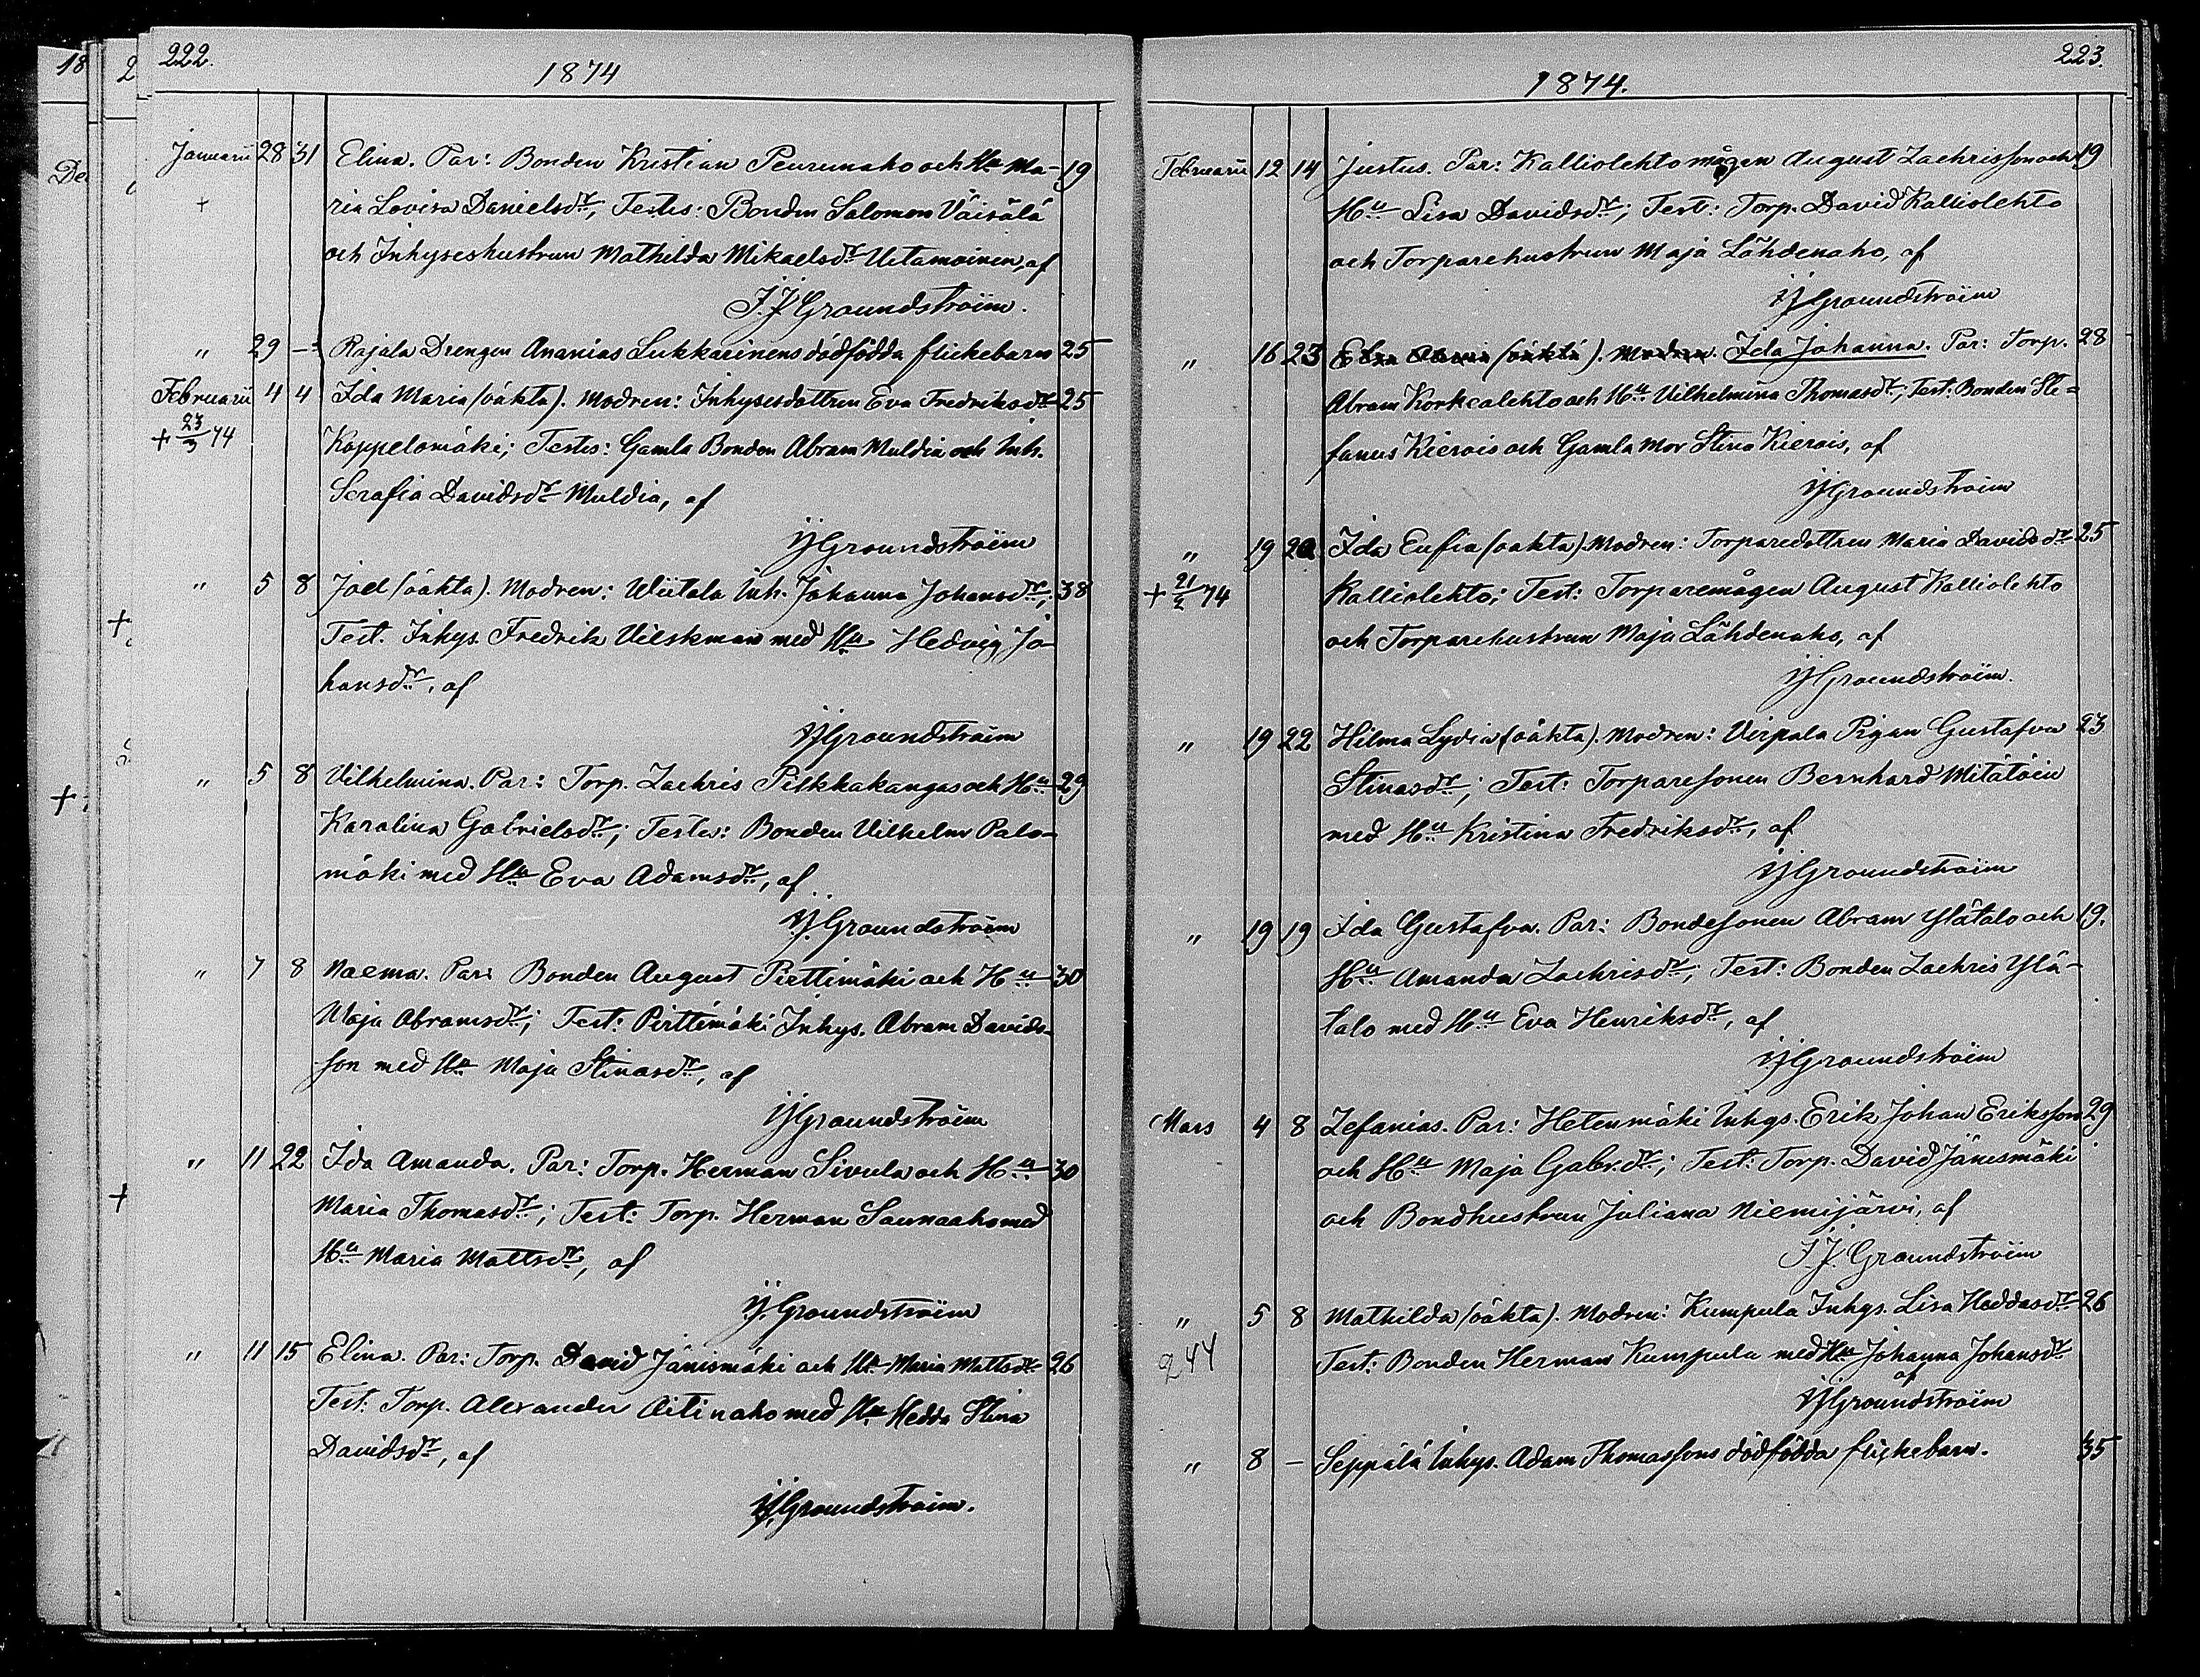 222.
1874
Januarii 28 31 Elina. Par: Bonden Kristian Peurunaho och Hu Ma- 19
+ ria Lovisa Danielsdr; Testes: Bonden Salomon Väisälä
och Inhyseshustrun Mathilda Mikaelsdr Utamoinen, af
J.J Groundstroim.
" 29 — Rajala Drengen Ananias Lukkarinens dödfödda flickebarn 25
Februarii 4 4 Ida Maria (oäkta). Modren: Inhysesdottren Eva Fredriksdr 25
+ 23/3 74 Koppelomäki; Testes: Gamla Bonden Abram Muldia och Inh.
Serafia Davidsdr Muldia, af
JJ Groundstroim
" 5 8 Joel (oäkta). Modren: Wiitala Inh. Johanna Johansdr; 38
Test. Inhys. Fredrik Vilskman med Hu Hedvig Jo-
hansdr, af
JJ Groundstroim
" 5 8 Vilhelmina. Par: Torp. Zachris Pilkkakangas och Hu 29
Karalina Gabrielsdr; Testes: Bonden Vilhelm Palo-
mäki med Hu Eva Adamsdr, af
J.J. Groundstroim
" 7 8 Naema. Par: Bonden August Pirttimäki och Hu 30
Maja Abramsdr; Test: Pirttimäki Inhys. Abram Davids-
son med Hu Maja Stinasdr, af
JJ Groundstroim
" 11 22 Ida Amanda. Par: Torp. Herman Sivula och Hu 30
Maria Thomasdr; Test: Torp. Herman Saunaaho med
Hu Maria Mattsdr, af
J.J. Groundstroim
" 11 15 Elina. Par: Torp. David Jänismäki och Hu Maria Mattsdr 26
Test: Torp. Alexander Aitinaho med Hu Hedda Stina
Davidsdr, af
JJ. Groundstroim.
223.
1874.
Februarii 12 14 Justus. Par: Kalliolehto mågen August Zachrisson och 19
Hu Lisa Davidsdr; Test: Torp. David Kalliolehto
och Torparehustrun Maja Lähdenaho, af
JJ Groundstroim
" 16 23 (oäkta). Modren. Ida Johanna. Par: Torp. 28
Abram Korkealehto och Hu Vilhelmina Thomasdr; Test: Bonden Ste=
fanus Kierois och Gamla Mor Stina Kierois, af
JJ Groundstroim
" 19 20 Ida Eufia (oäkta) Modren: Torparedottren Maria Davidsdr 25
+ 21/2 74 Kalliolehto; Test: Torparemågen August Kalliolehto
och Torparehustrun Maja Lähdenaho, af
JJ Groundstroim.
" 19 22 Hilma Lydia (oäkta). Modren: Virpala Pigan Gustafva 23
Stinasdr; Test: Torparesonen Bernhard Mitätöin
med Hu Kristina Fredriksdr, af
JJ Groundstroim
" 19 19 Ida Gustafva. Par: Bondesonen Abram Ylätalo och 19.
Hu Amanda Zachrisdr; Test: Bonden Zachris Ylä-
talo med Hu Eva Henriksdr, af
JJ Groundstroim
Mars 4 8 Zefanias. Par: Hetenmäki Inhys. Erik Johan Eriksson 29
och Hu Maja Gabr.dr; Test: Torp. David Jänesmäki
och Bondhustrun Juliana Niemijärvi, af
J.J. Groundstroim
" 5 8 Mathilda (oäkta). Modren: Kumpula Inhys. Lisa Heddasdr 26
244 Test: Bonden Herman Kumpula med Hu Johanna Johansdr
af
JJ Groundstroim
" 8 — Seppälä Inhys. Adam Thomassons dödfödda flickebarn. 35